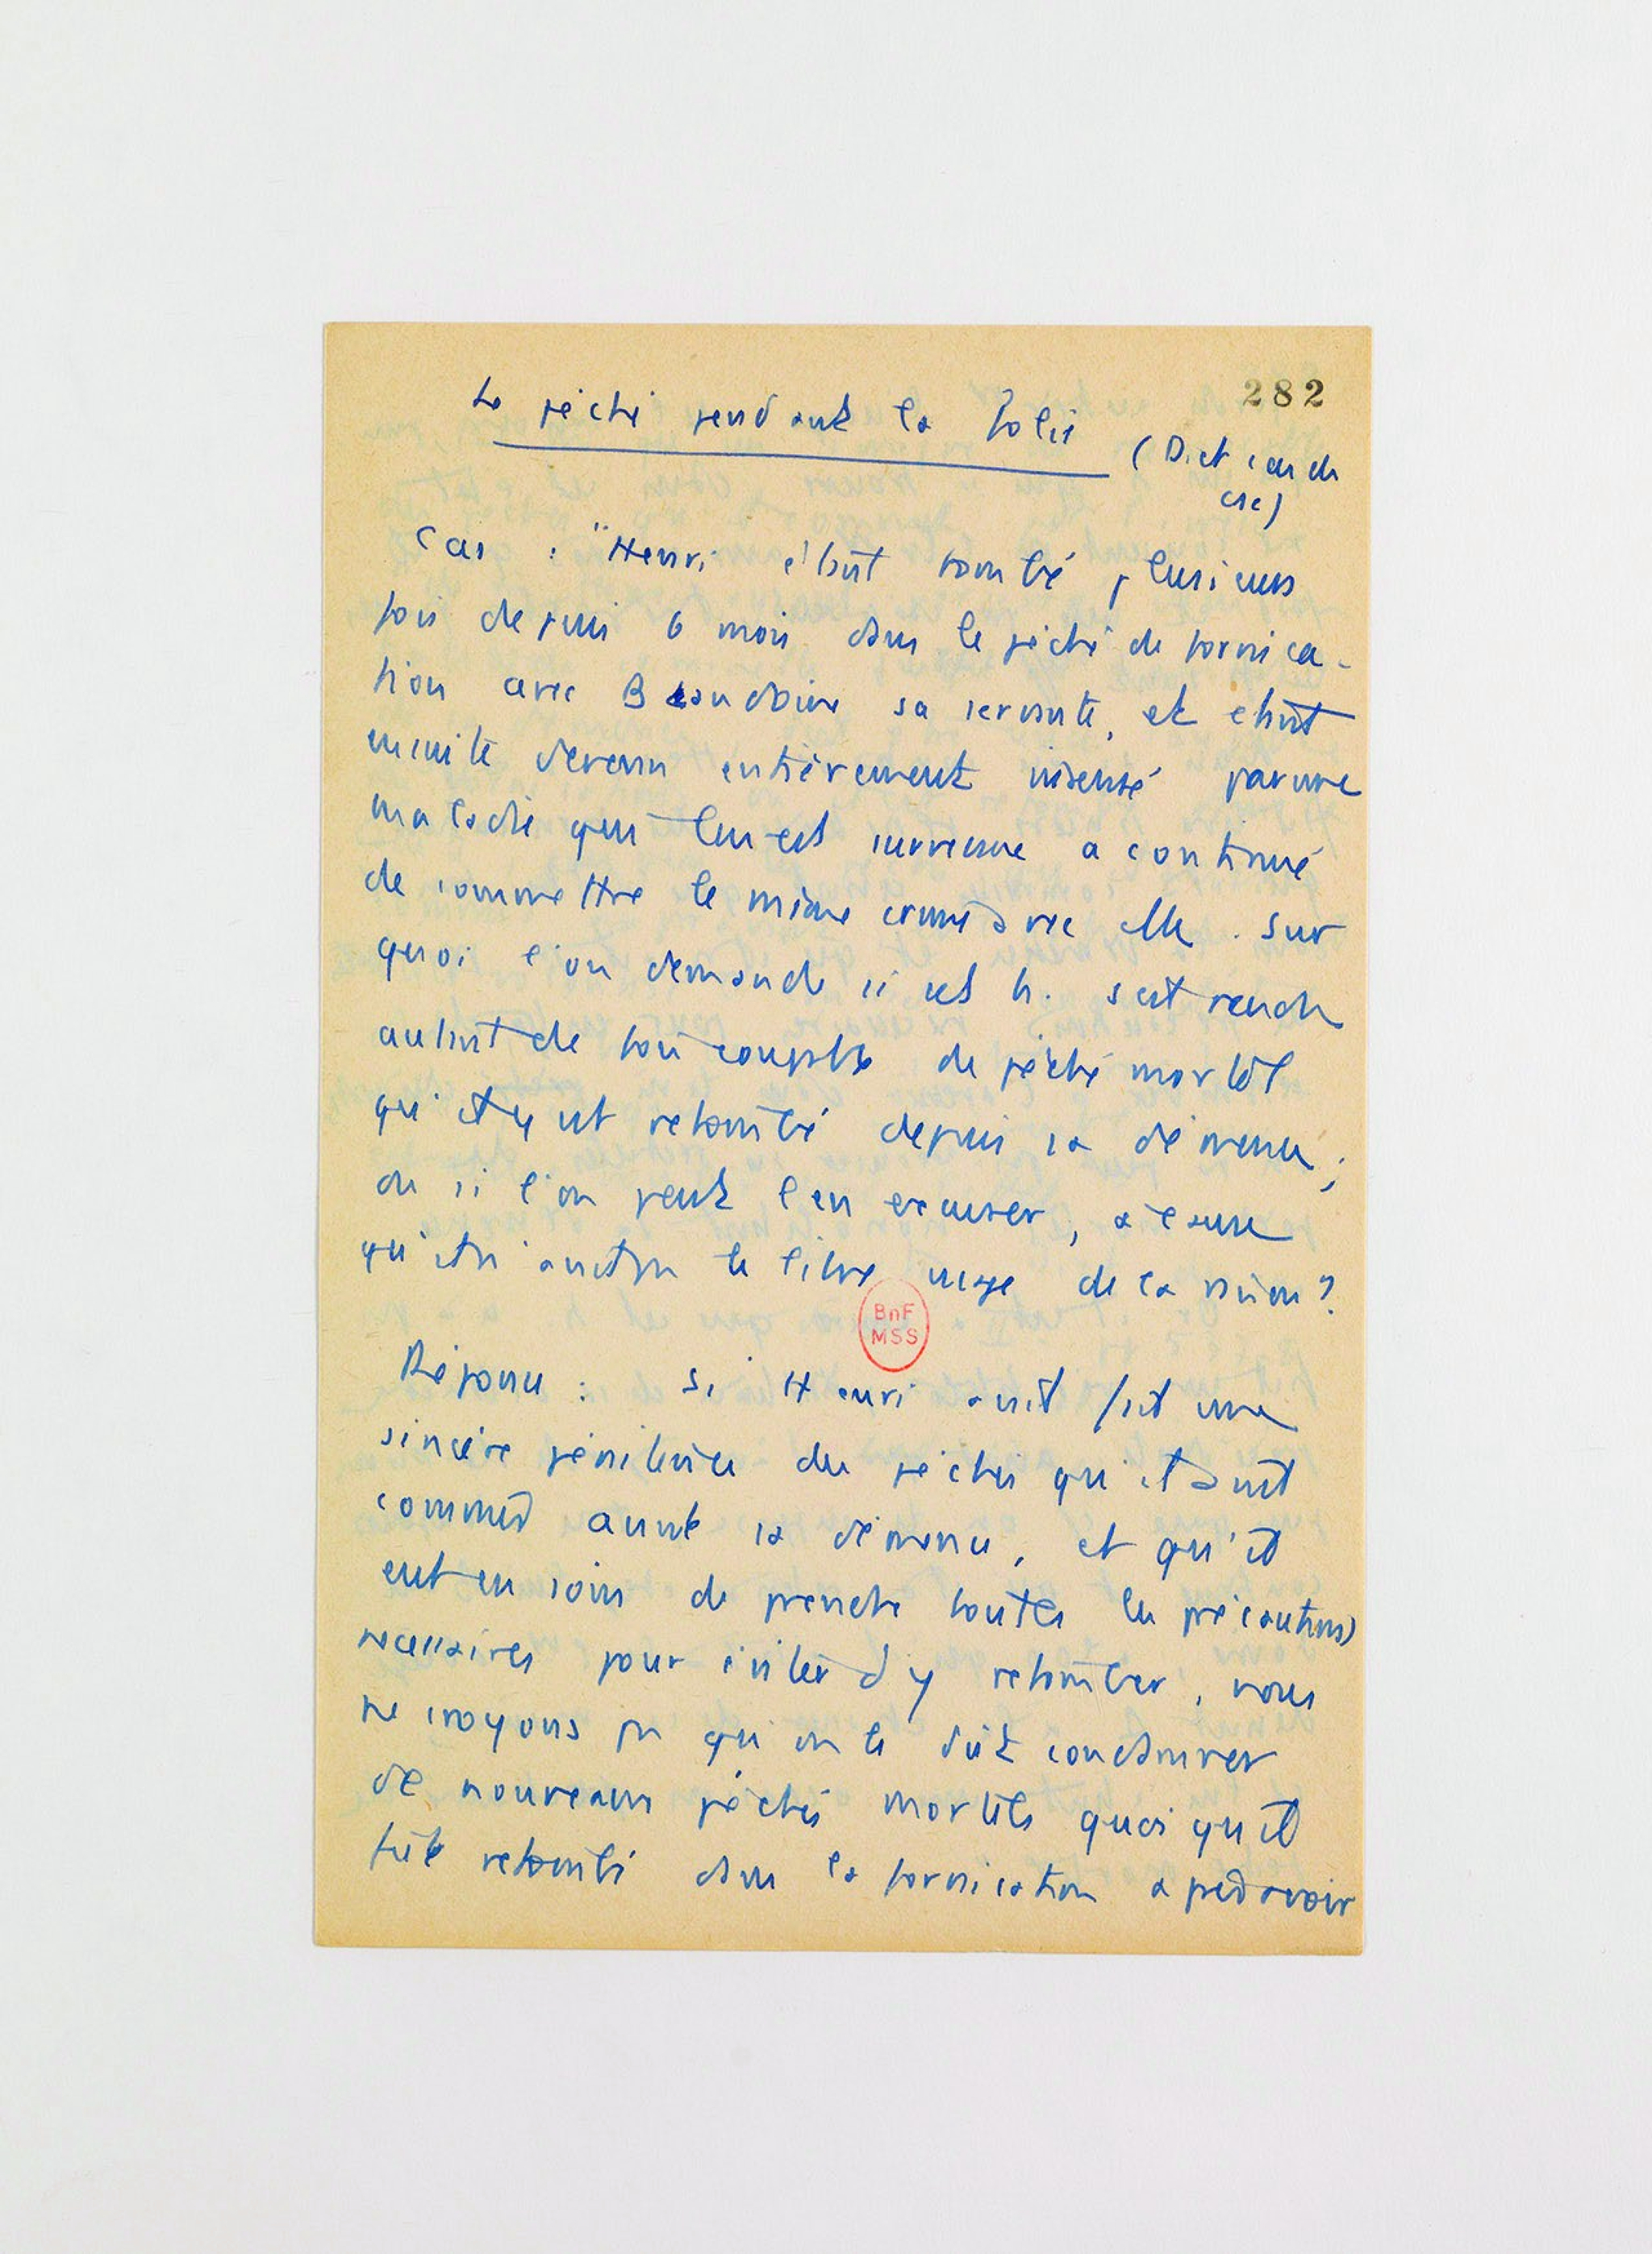 282
Le péché pendant la folie
(Dict cas de
csc)
Cas : "Henri étant tombé plusieurs
fois depuis 6 mois dans le péché de fornica-
tion avec Baudoine sa servante, et étant
ensuite devenu entièrement insensé par une
maladie qui lui est survenue a continué
de commettre le même crime avec elle. Sur
quoi l'on demande si cet h. s'est rendu
autant de fois coupable de péché mortel
qu'il y est retombé depuis sa démence ;
ou si l'on peut l'en excuser, à cause
qu'il n'avait pas le libre usage de la raison ?
BnF
MSS
Réponse : Si Henri avait fait une
sincère pénitence des péchés qu'il avait
commis avant sa démence, et qu'il
eut eu soin de prendre toutes les précautions
nécessaires pour éviter d'y retomber, nous
ne croyons pas qu'on le dût condamner
de nouveaux péchés mortels quoiqu'il
fût retombé dans la fornication après avoir